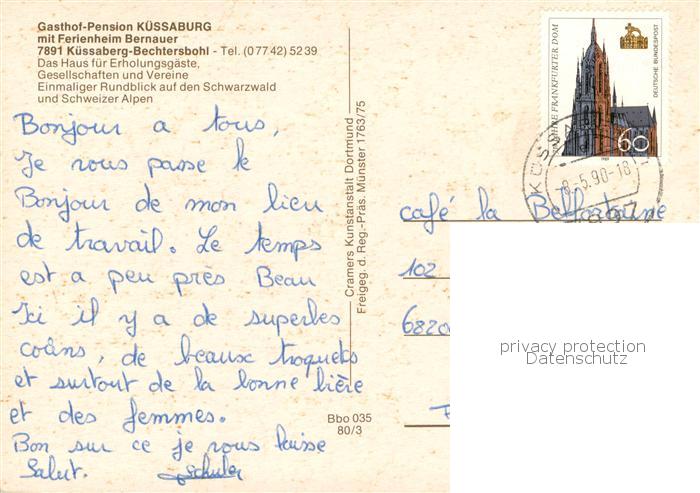 Gasthof-Pension KÜSSABURG
mit Ferienheim Bernauer
7891 Küssaberg-Bechtersbohl - Tel. (07742) 5239
Das Haus für Erholungsgäste,
Gesellschaften und Vereine
Einmaliger Rundblick auf den Schwarzwald
und Schweizer Alpen
Bonjour a tous,
Je vous passe le
Bonjour de mon lieu
de travail. Le temps
est a peu près Beau
Ici il y a de superbes
coins, de beaux troquets
et surtout de la bonne bière
et des femmes.
Bon sur ce je vous laisse
Salut. Schuler
Cramers Kunstanstalt Dortmund
Freigeg. d. Reg.-Präs. Münster 1763/75
Bbo 035
80/3
JAHRE FRANKFURTER DOM
DEUTSCHE BUNDESPOST
60
1989
KÜSSA
-8.-5.90-18
café la Belfortaine
102
6820
privacy protection
Datenschutz